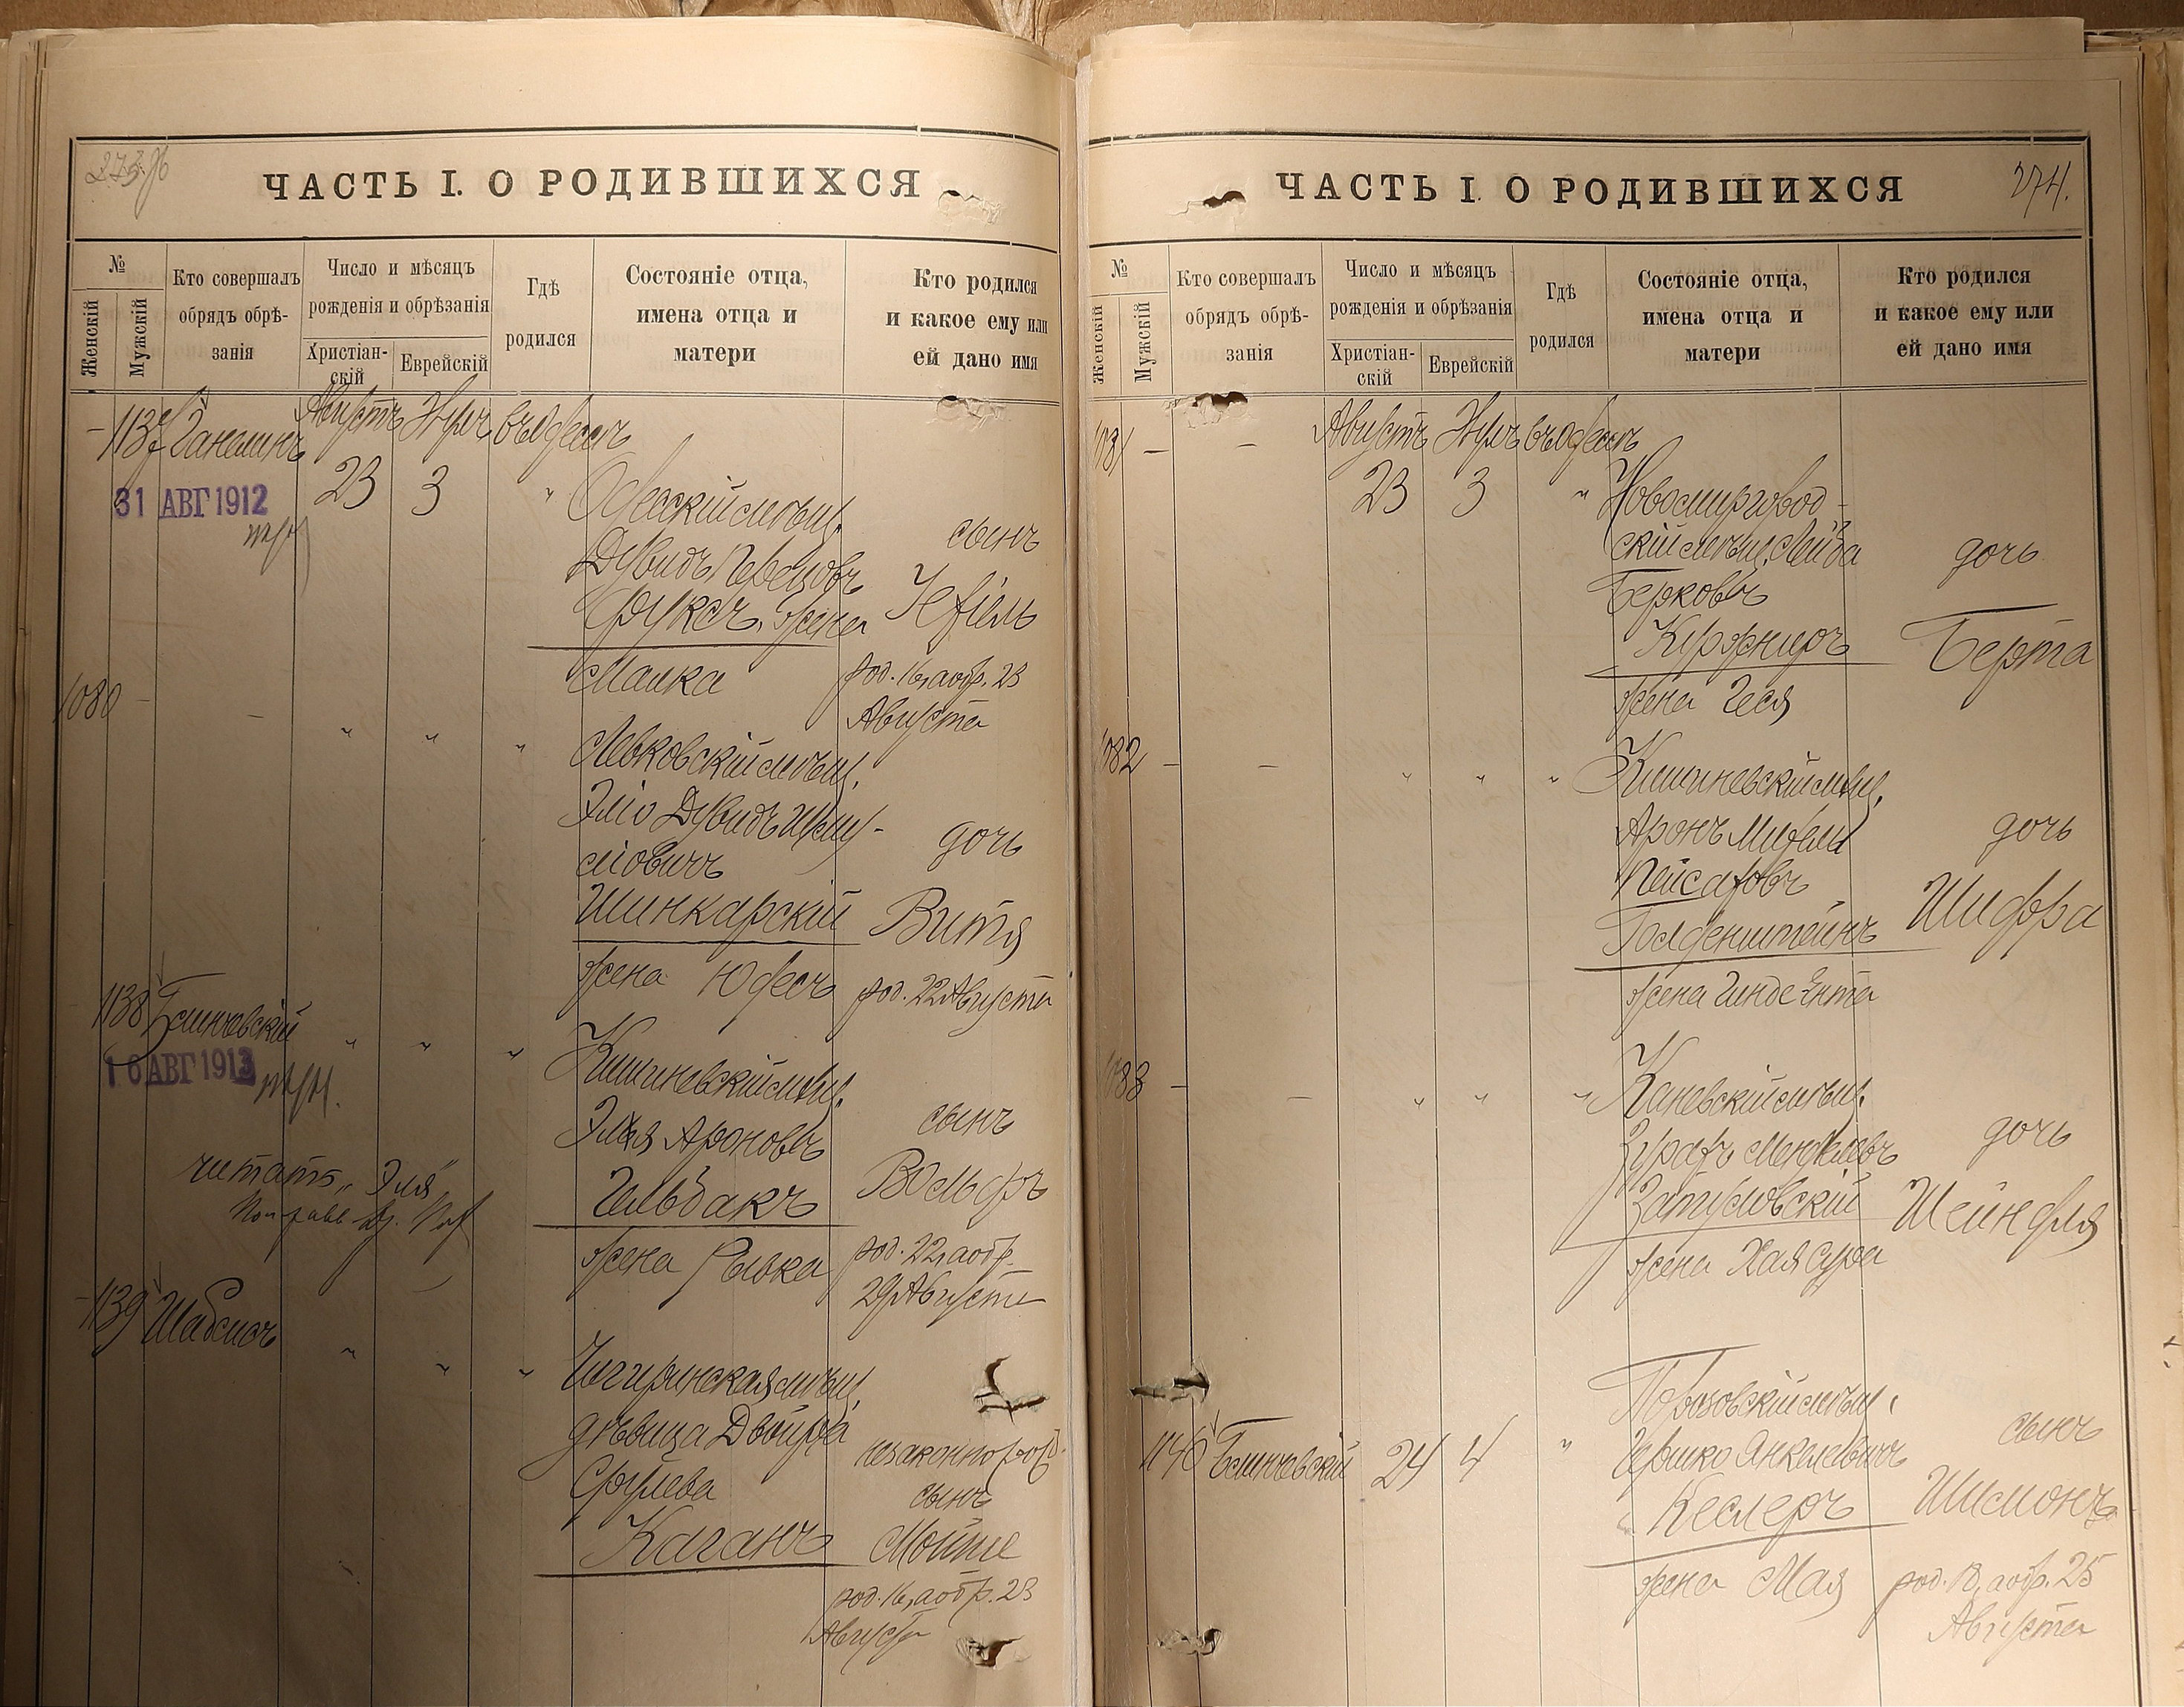 273 об
ЧАСТЬ I. О РОДИВШИХСЯ
№
Женскій
Мужскій
Кто совершалъ
обрядъ обрѣ-
занія
Число и мѣсяцъ
рожденія и обрѣзанія
Христіан-
скій
Еврейскій
Гдѣ
родился
Состояніе отца,
имена отца и
матери
Кто родился
и какое ему или
ей дано имя
1137 Ганелинъ Августъ въ Одессѣ
23 3 " Одесскій мѣщ.
31 АВГ 1912
Дувидъ Перецовъ сынъ
Фуксъ, жена Іехіель
Малка род. 16, а обр. 23
Августа
1080 - - " " "
Левковскій мѣщ.
Эліо Дувидъ Шму-
ліовичъ дочь
Шинкарскій Витя
жена Юдесъ род. 22 Августа
1138 Блинчевскій " " "
16 АВГ 1913
Кишиневскій мѣщ.
Элья Ароновъ сынъ
Гельбакъ Вольфъ
читать „Эля"
жена Рывка род. 22, а обр.
29 Августа
1139 Шабсисъ " " "
Чигиринская мѣщ.
дѣвица Двойра незаконнорожд.
Сруліева сынъ
Каганъ Мойше
род. 16, а обр. 23
Августа
274.
ЧАСТЬ I. О РОДИВШИХСЯ
№
Женскій
Мужскій
Кто совершалъ
обрядъ обрѣ-
занія
Число и мѣсяцъ
рожденія и обрѣзанія
Христіан-
скій
Еврейскій
Гдѣ
родился
Состояніе отца,
имена отца и
матери
Кто родился
и какое ему или
ей дано имя
1081 - - Августъ въ Одессѣ
23 3 " Новомиргород-
скій мѣщ. Лейба дочь
Берковъ
Куржнеръ Берта
жена Геся
1082 - - " " "
Кишиневскій мѣщ.
Аронъ Михель дочь
Пейсаховъ
Голденштейнъ Шифра
жена Гинде Ента
1083 - - " " "
Каневскій мѣщ.
Менделевъ дочь
Затуловскій Шейндля
жена Хая Сура
мѣщ.
1140 Блинчевскій 24 4 "
Гершко Янкелевичъ сынъ
Кеслеръ Шимонъ
жена Мая род. 18, а обр. 25
Августа